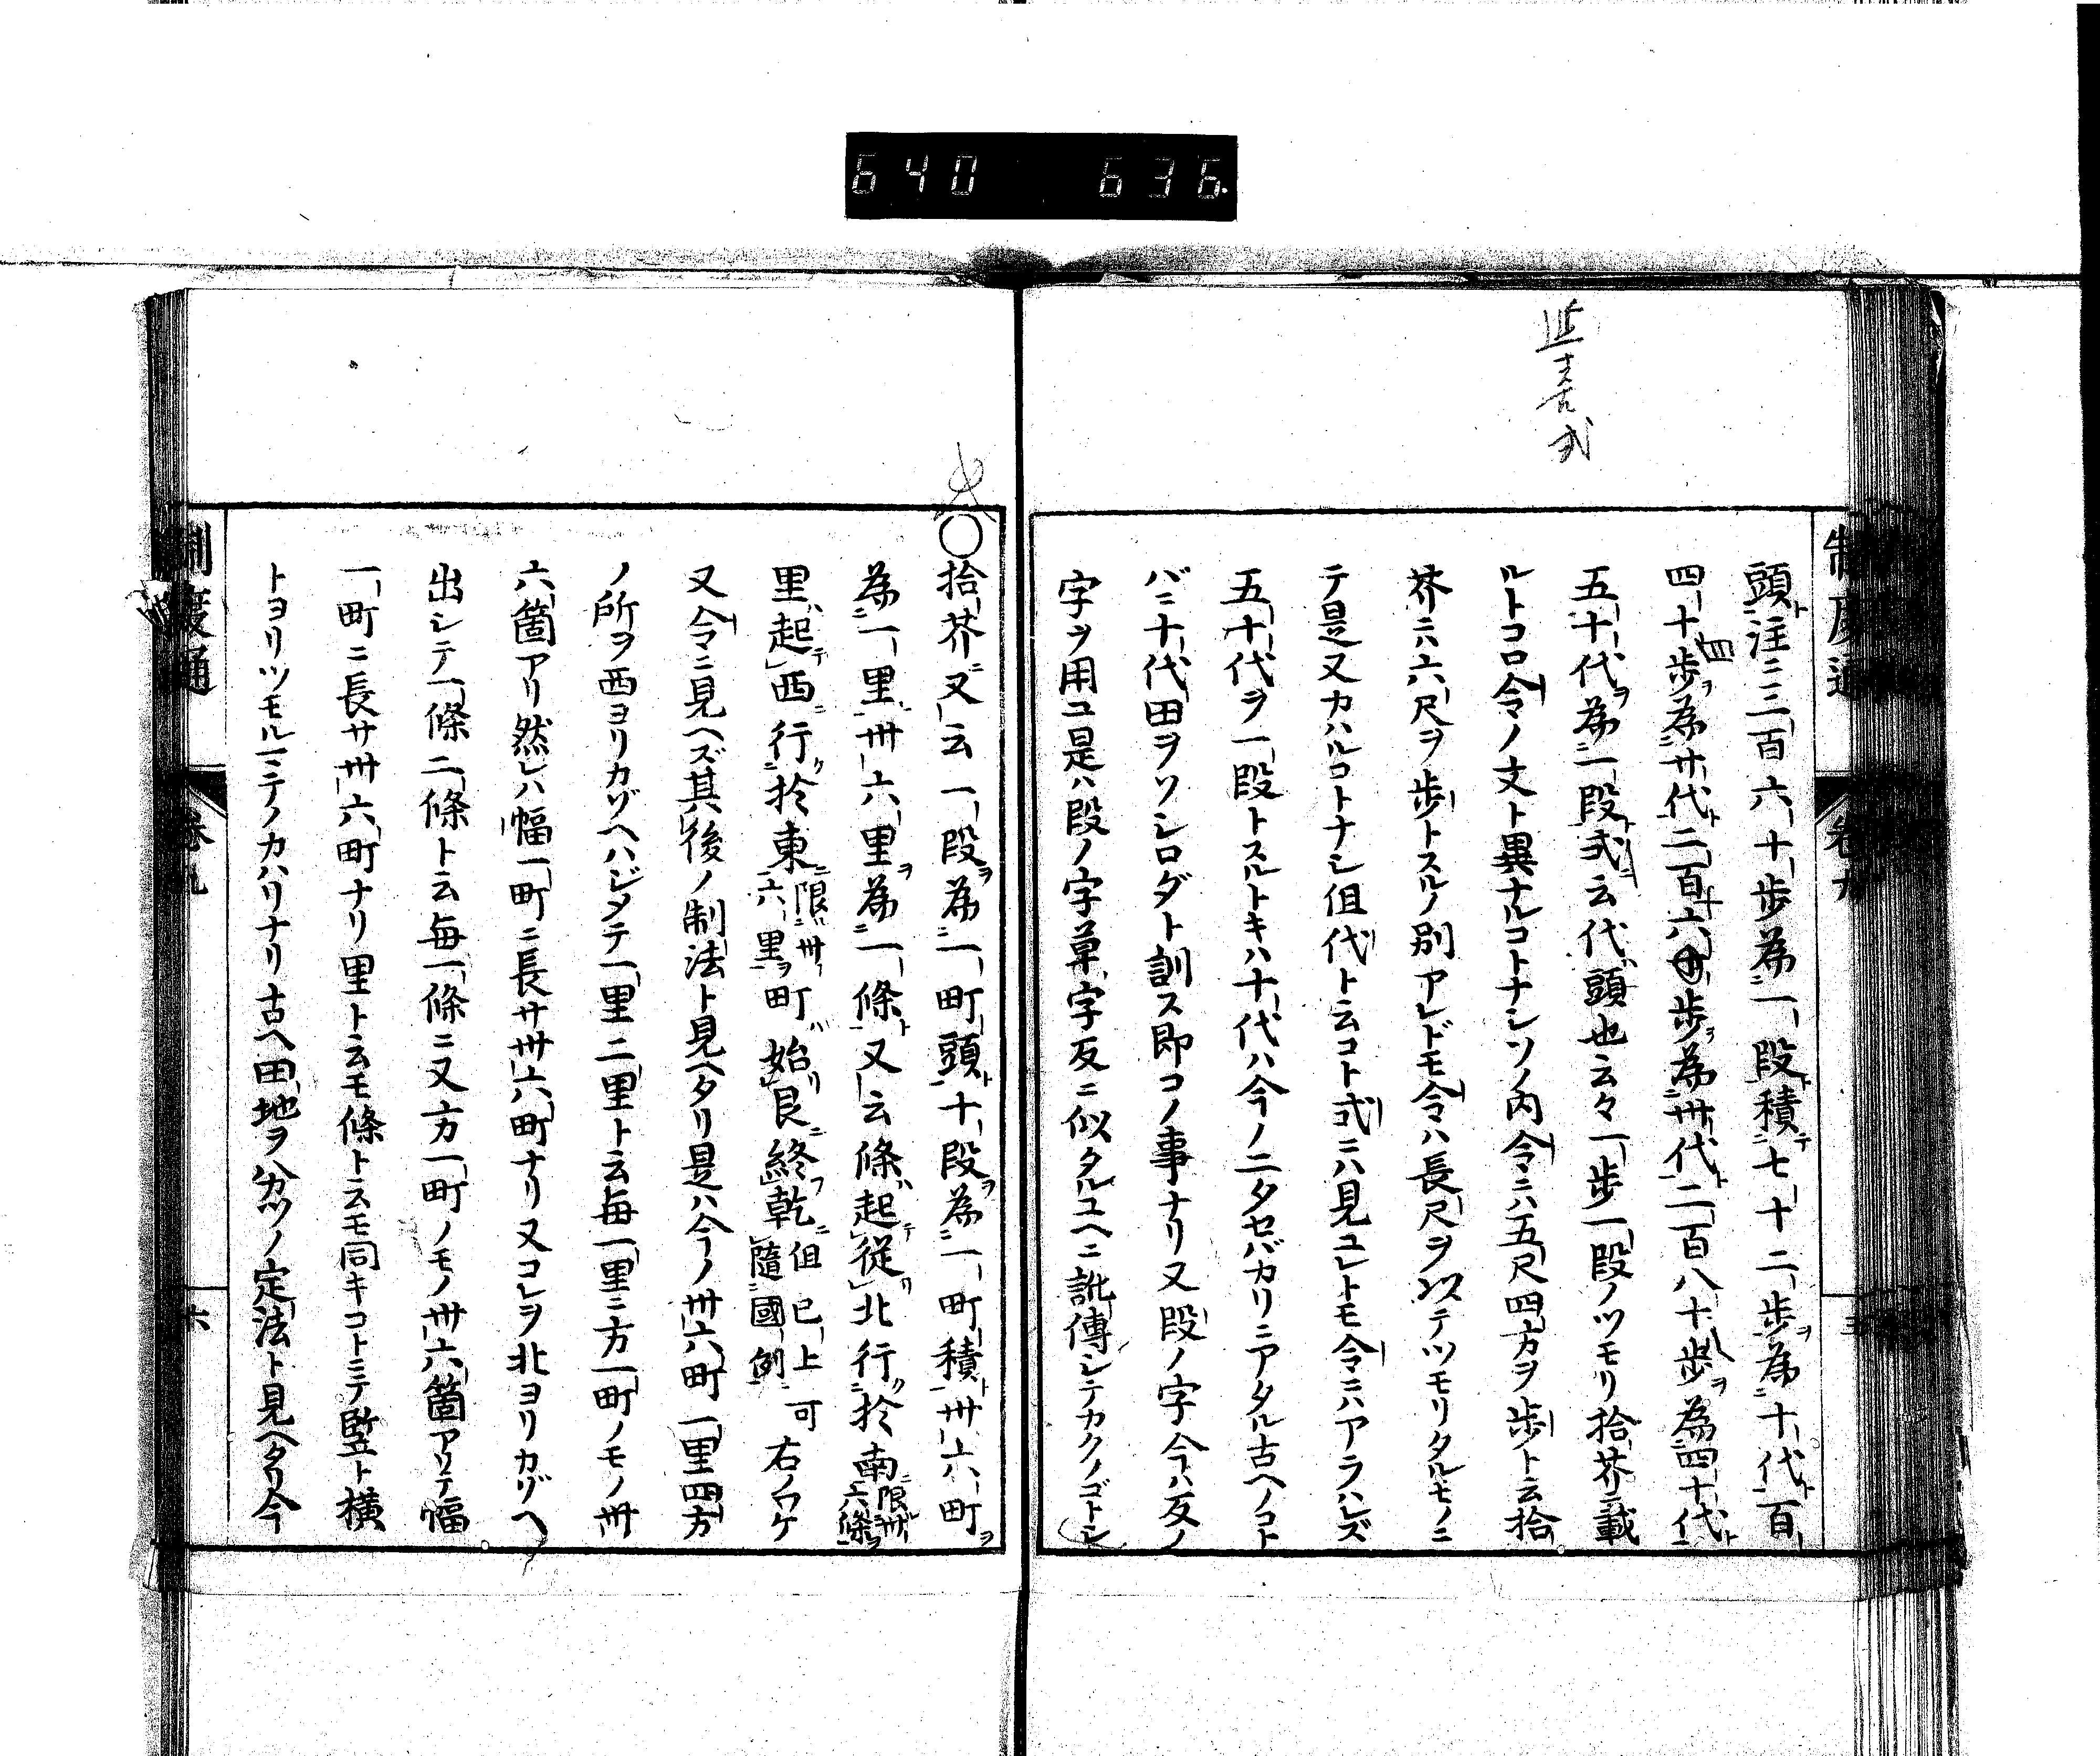 640 636
制度通 卷九
頭ト注ニ三百六十歩為一段積七十二歩為十代百
四十四歩為廿代二百十六歩為卅代二百八十八歩為四十代
五十代為一段弐云代頭也云々一歩一段ノツモリ拾芥ニ載
ルトコロ令ノ文ト異ナルコトナシソノ内令ニハ五尺四方ヲ歩ト云拾
芥ニハ六尺ヲ歩トスルノ別アレドモ令ハ長尺ヲ以テツモリタルモノニ
テ是又カハルコトナシ但代ト云コト弐ニハ見ユレトモ令ニハアラハレズ
五十代ヲ一段トスルトキハ十代ハ今ノ二夕セバカリニアタル古ヘノコト
バニ十代田ヲソシロダト訓ス即コノ事ナリ又段ノ字今ハ反ノ
字ヲ用ユ是ハ段ノ字草字反ニ似タルユヘニ訛傳シテカクノゴトシ
○拾芥ニ又云一段為一町頭十段為一町積卅六町ヲ
為一里卅六里為一條又云條起從北行於南限卅六條
里起西行於東限卅六里町始艮終乾但已上可隨國例右ノワケ
又令ニ見ヘズ其後ノ制法ト見ヘタリ是ハ今ノ卅六町一里四方
ノ所ヲ西ヨリカゾヘハジメテ一里二里ト云毎一里ニ方一町ノモノ卅
六箇アリ然レハ幅一町ニ長サ卅六町ナリ又コレヲ北ヨリカゾヘ
出シテ一條二條ト云毎一條ニ又方一町ノモノ卅六箇アリテ幅
一町ニ長サ卅六町ナリ里ト云モ條ト云モ同キコトニテ竪ト横
トヨリツモル一ミテノカハリナリ古ヘ田地ヲ分ツノ定法ト見ヘタリ今
制度通 卷九 六